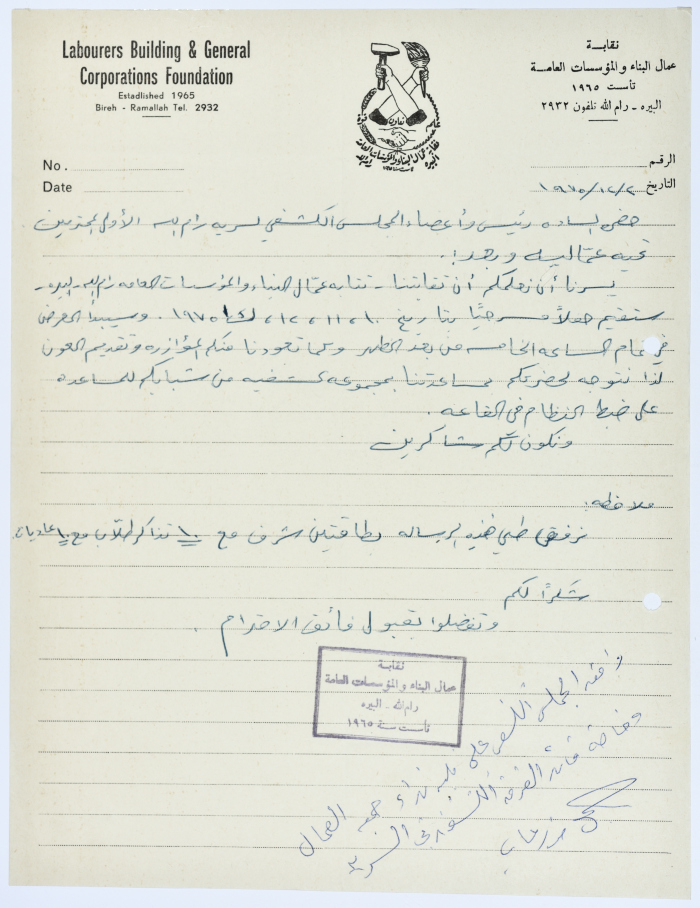 Labourers Building & General
Corporations Foundation
Estadlished 1965
Bireh - Ramallah Tel. 2932
نقابة
عمال البناء والمؤسسات العامة
تأست ١٩٦٥
البيره - رام الله تلفون ٢٩٣٢
تعاون
No.
Date
الرقم
التاريخ ١٩٧٥/١٢/٢
حضرة الساده رئيس وأعضاء المجلس الكشفي لسرية رام الله الأولى المحترمين
تحيه عماليه وبعد:
يسرنا أن نعلمكم أن نقابتنا - نقابة عمال البناء والمؤسسات العامه رام الله - البيره -
ستقيم حفلاً مسرحيًا بتاريخ ١٠، ١١، ١٢، ك١ ١٩٧٥. وسيبدأ العرض
في تمام الساعه الخامسه من بعد الظهر وكما تعودنا منكم المؤازره وتقديم العون
لذا نتوجه لحضرتكم مساعدتنا بمجموعه كشفيه من شبابكم للمساعده
على ضبط النظام في القاعه.
ونكون لكم شاكرين
ملاحظه:
نرفق طي هذه الرساله بطاقتين شرف مع ١٠ تذاكر طلاب مع ١٠ عاديات
شكراً لكم
وتفضلوا بقبول فائق الاحترام.
نقابة
عمال البناء والمؤسسات العامة
رام الله - البيره
تأست سنة ١٩٦٥
وافق المجلس الكشفي على تلبية نداء جمعية العمال
قائد الفرقة الكشفية في السرية